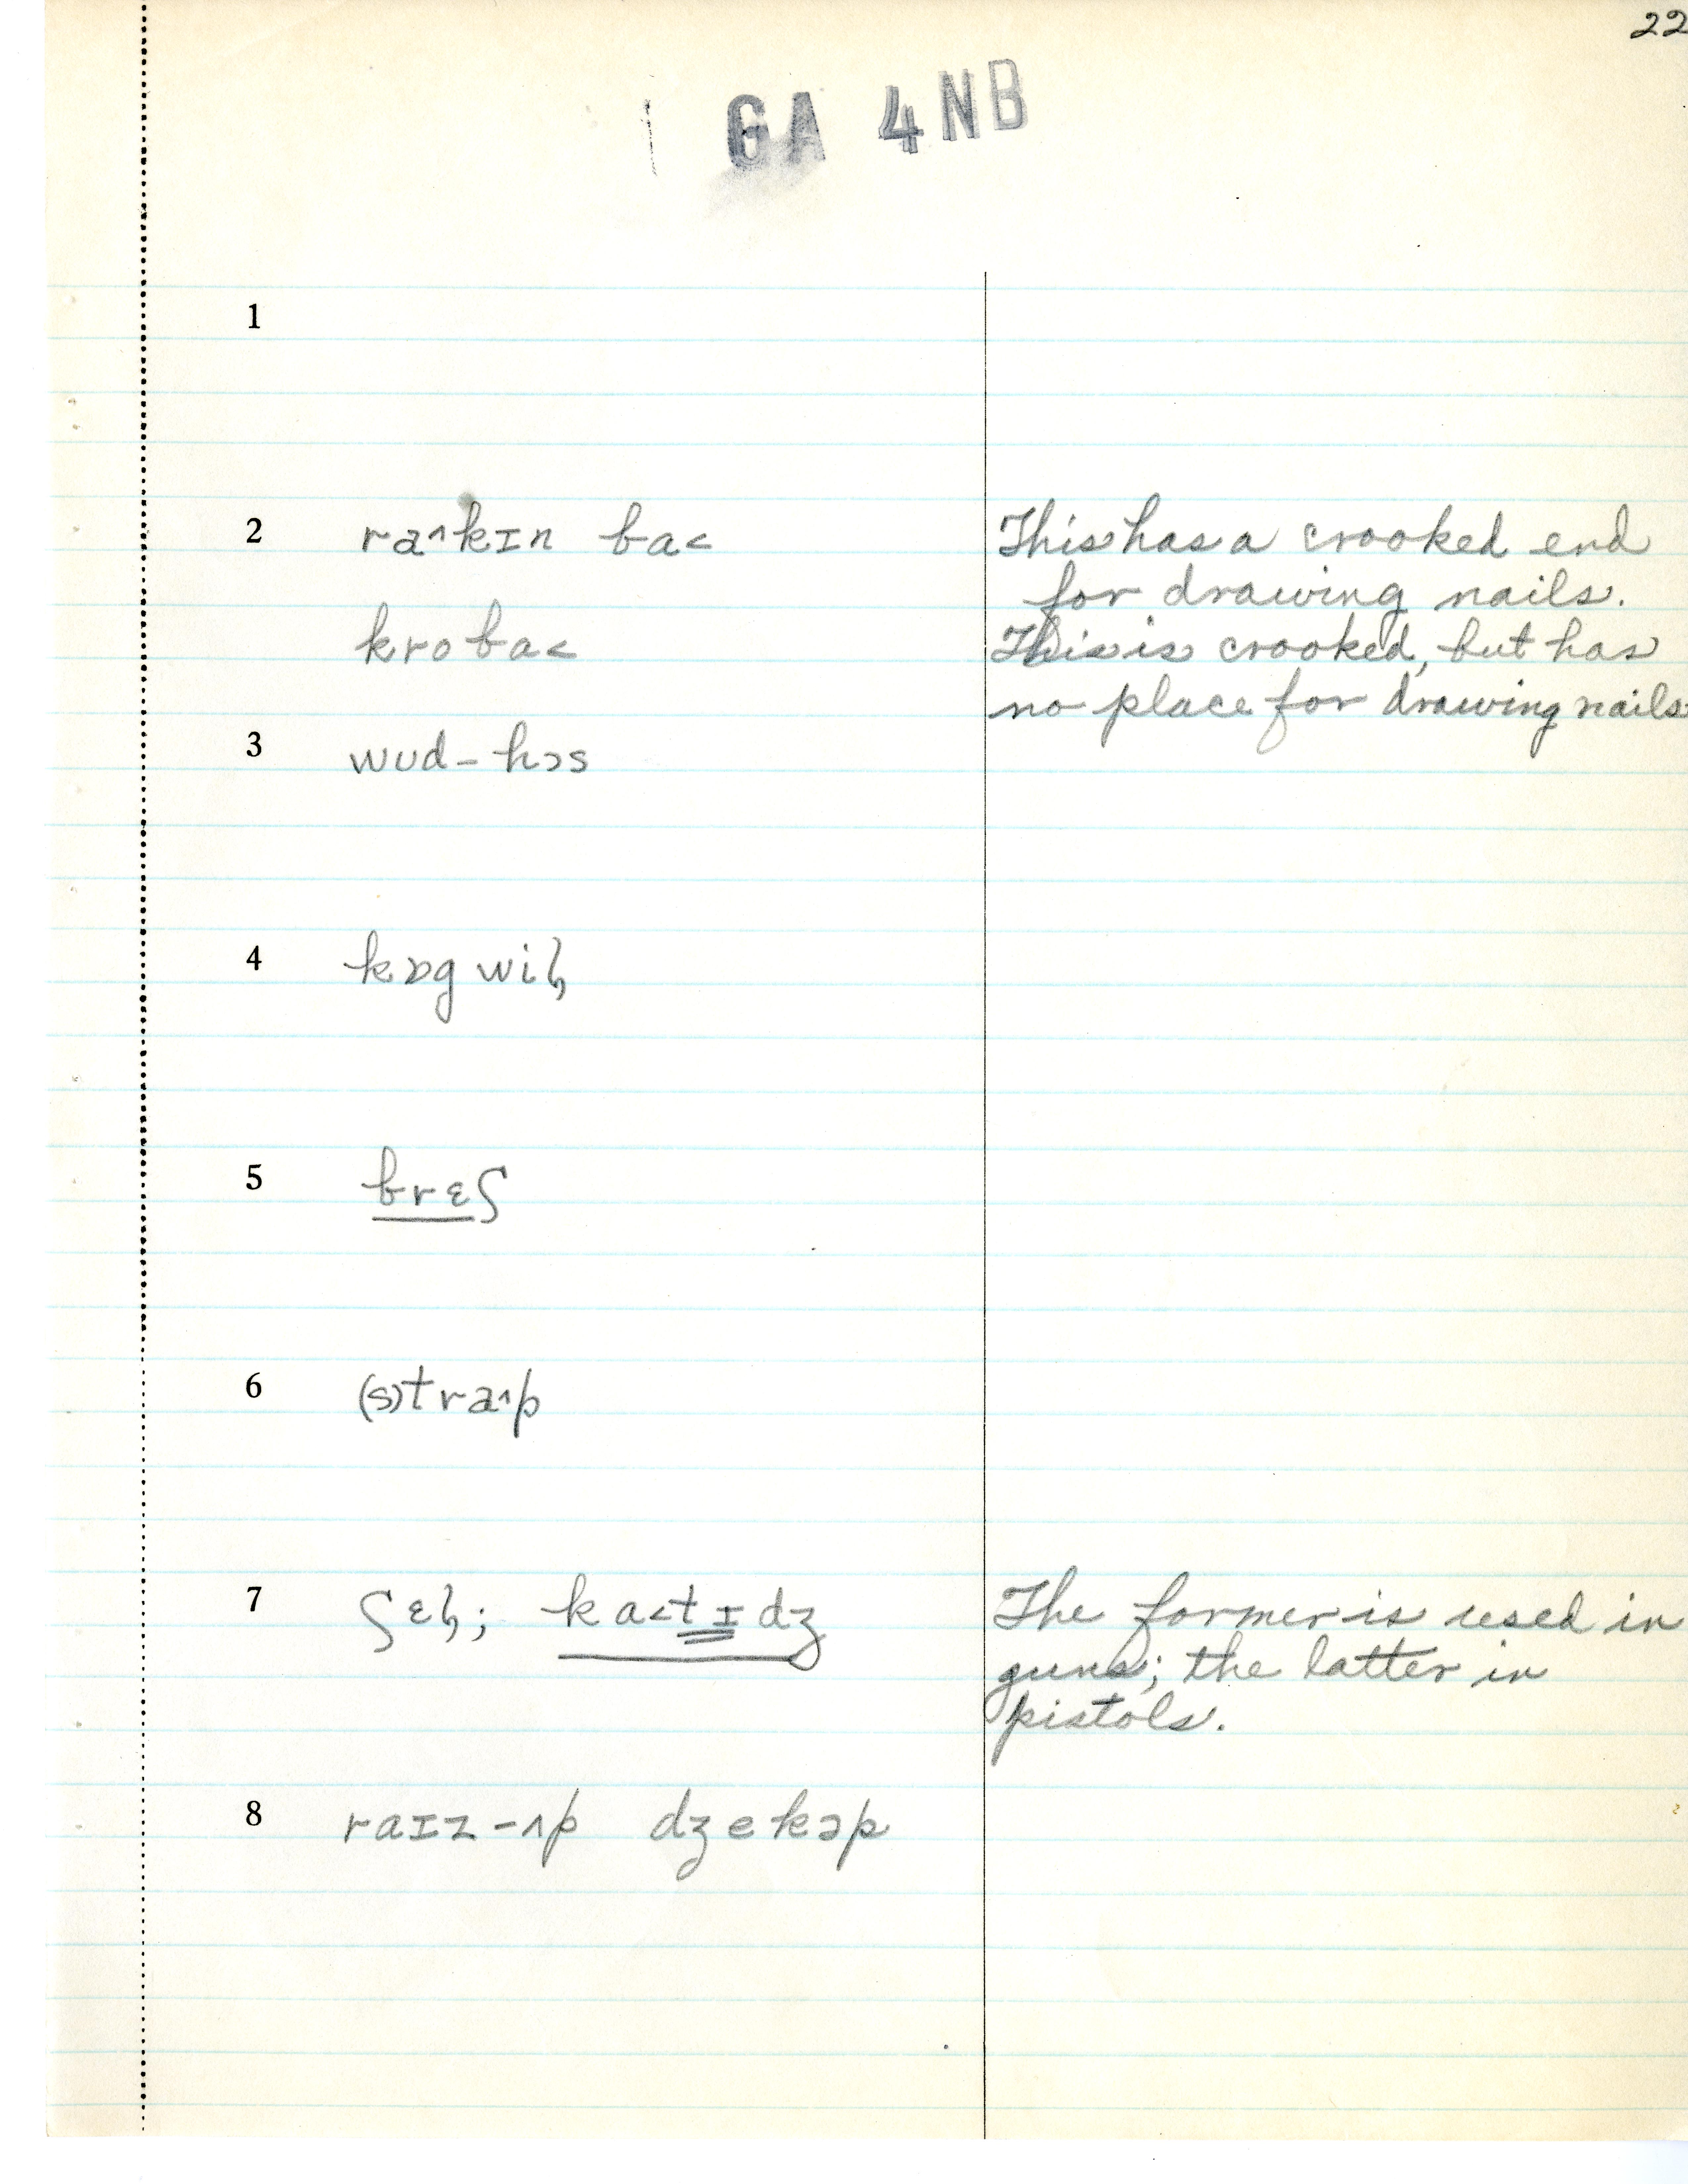 22
GA 4NB
1
2 ra˄kɪn ba˂ This has a crooked end
for drawing nails.
kroba˂ This is crooked, but has
no place for drawing nails.
3 wʊd-hɔs
4 kɒg wiɦ
5 brɛʃ
6 (s)tra˄p
7 ʃɛɦ; ka˂tɪdʒ The former is used in
guns; the latter in
pistols.
8 raɪz-ʌp dʒekəp